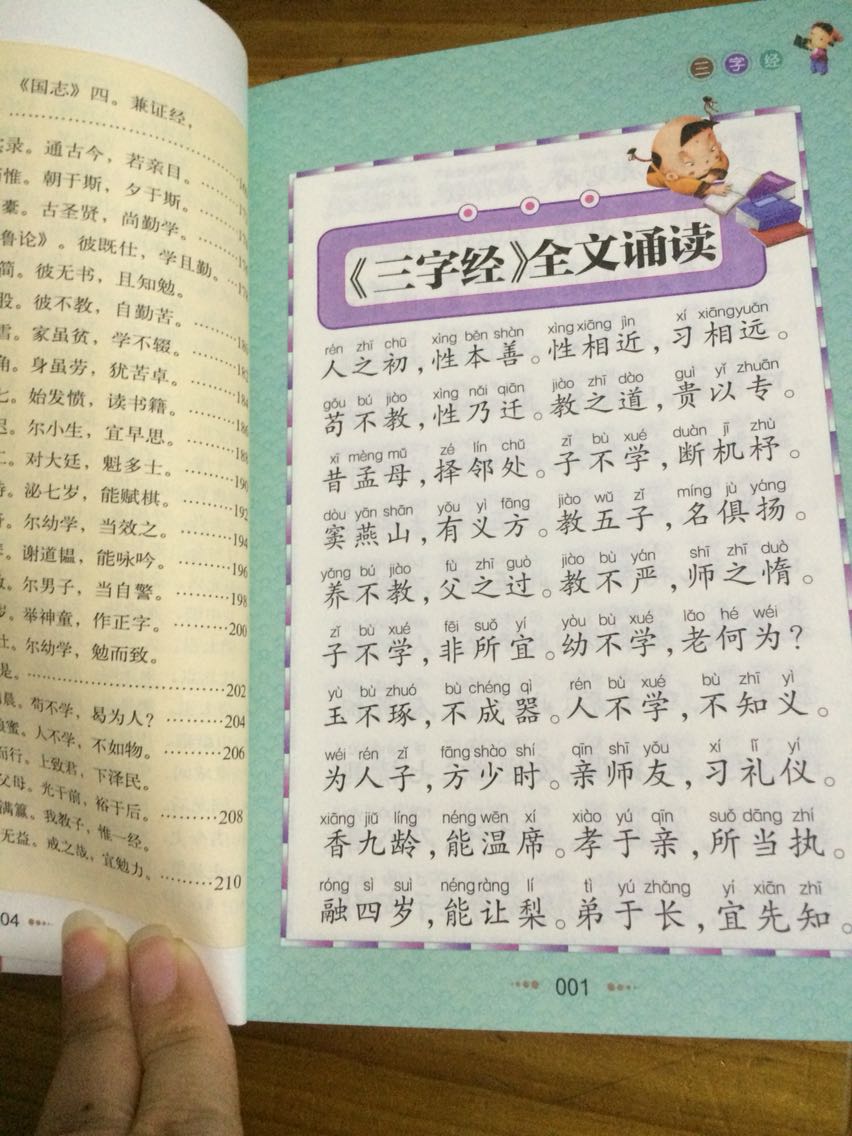 《国志》四。兼证经，
录。通古今，若亲目。
惟。朝于斯，夕于斯。
橐。古圣贤，尚勤学。
鲁论》。彼既仕，学且勤。
简。彼无书，且知勉。
股。彼不教，自勤苦。
雪。家虽贫，学不辍。
角。身虽劳，犹苦卓。
七。始发愤，读书籍。
尔小生，宜早思。
对大廷，魁多士。
泌七岁，能赋棋。
尔幼学，当效之。
谢道韫，能咏吟。
尔男子，当自警。
举神童，作正字。
尔幼学，勉而致。
是。
晨。苟不学，曷为人？
蜜。人不学，不如物。
而行。上致君，下泽民。
父母。光于前，裕于后。
满籯。我教子，惟一经。
无益。戒之哉，宜勉力。
180
182
184
186
188
190
192
194
196
198
200
202
204
206
208
210
04
三字经
《三字经》全文诵读
rén zhī chū xìng běn shàn xìng xiāng jìn xí xiāng yuǎn
人之初，性本善。性相近，习相远。
gǒu bú jiào xìng nǎi qiān jiào zhī dào guì yǐ zhuān
苟不教，性乃迁。教之道，贵以专。
xī mèng mǔ zé lín chǔ zǐ bù xué duàn jī zhù
昔孟母，择邻处。子不学，断机杼。
dòu yān shān yǒu yì fāng jiào wǔ zǐ míng jù yáng
窦燕山，有义方。教五子，名俱扬。
yǎng bú jiào fù zhī guò jiào bù yán shī zhī duò
养不教，父之过。教不严，师之惰。
zǐ bù xué fēi suǒ yí yòu bù xué lǎo hé wéi
子不学，非所宜。幼不学，老何为？
yù bù zhuó bù chéng qì rén bù xué bù zhī yì
玉不琢，不成器。人不学，不知义。
wéi rén zǐ fāng shào shí qīn shī yǒu xí lǐ yí
为人子，方少时。亲师友，习礼仪。
xiāng jiǔ líng néng wēn xí xiào yú qīn suǒ dāng zhí
香九龄，能温席。孝于亲，所当执。
róng sì suì néng ràng lí tì yú zhǎng yí xiān zhī
融四岁，能让梨。弟于长，宜先知。
001